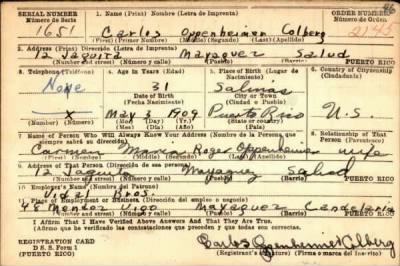 SERIAL NUMBER 1. Name (Print) (Letra de Imprenta) ORDER NUMBER
Número de Serie Número de Orden
1651 Carlos Oppenheimer Colberg 2145
(First) (Nombre) (Middle) (Segundo) (Last) (Apellido)
2. Address (Print) Dirección (Letra de Imprenta)
12 Jaguita Mayaguez Salud
(Number and street) (Número y calle) (Town) (Pueblo) (Barrio) PUERTO RICO
3. Telephone (Teléfono) 4. Age in Years (Edad) 5. Place of Birth (Lugar de Nacimiento) 6. Country of Citizenship (Ciudadanía)
None 31 Salinas
Date of Birth City or Town
(Fecha Nacimiento) (Ciudad o Pueblo)
X May 3 1909 Puerto Rico U.S.
(Mo.) (Day) (Yr.) (State or country)
(Mes) (Día) (Año) (Estado o país)
7. Name of Person Who Will Always Know Your Address (Nombre de la Persona, que siempre sabrá su dirección) 8. Relationship of That Person (Parentesco)
Carmen Maria Roger Oppenheimer wife
(Number) (Nombre) (Middle) (Segundo) (Last) (Apellido)
9. Address of That Person (Dirección de esa persona)
12 Jaguita Mayaguez Salud
(Number and street) (Número y calle) (Town) (Pueblo) (Barrio) PUERTO RICO
10. Employer's Name (Nombre del Patrono)
Vidal Bros.
11. Place of Employment or Business (Dirección del empleo o negocio)
48 Mendez Vigo Mayaguez Candelaria
(Number and street) (Número y calle) (Town) (Pueblo) (Barrio) PUERTO RICO
I Affirm That I Have Verified Above Answers and That They are True.
(Afirmo que he verificado las contestaciones que preceden y que todas son correctas.)
REGISTRATION CARD
D. S. S. Form 1
(PUERTO RICO)
Carlos Oppenheimer Colberg
(Registrant's signature) (Firma o marca del inscrito)